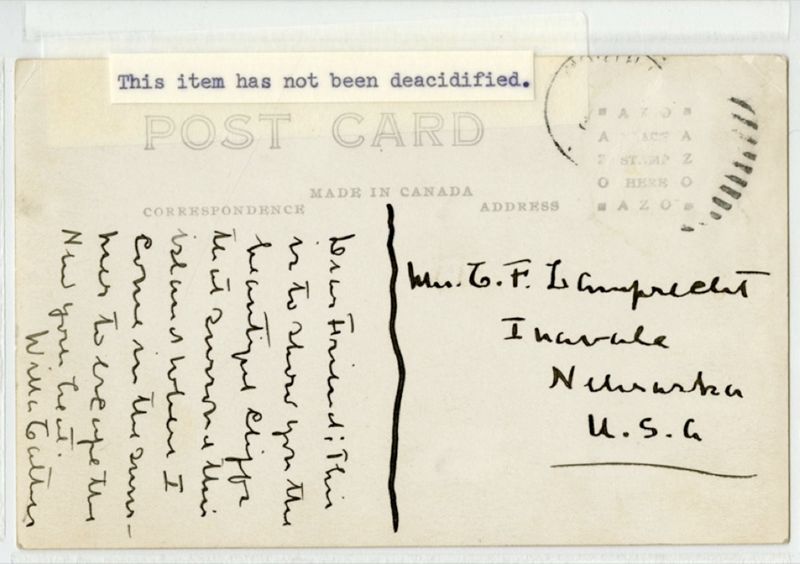 This item has not been deacidified.
POST CARD
MADE IN CANADA
CORRESPONDENCE
ADDRESS
AZO
A PLACE A
Z STAMP Z
O HERE O
AZO
Dear Friend; This
is to show you the
beautiful cliffs
that surround this
island where I
come in the sum-
mer to escape the
New York heat.
Willa Cather
Mrs. C. F. Lamprecht
Inavale
Nebraska
U. S. A